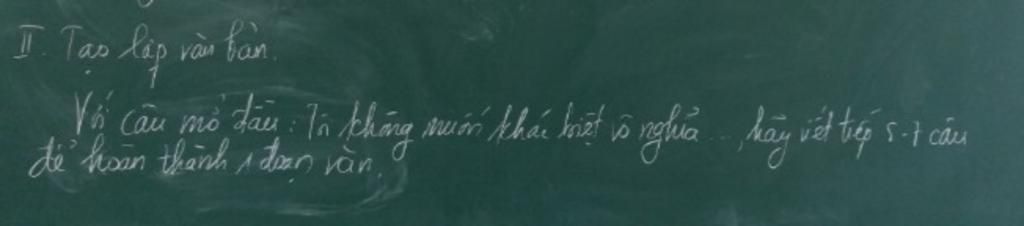 II. Tạo lập văn bản.
Với câu mở đầu: Tôi không muốn khác biệt vô nghĩa..., hãy viết tiếp 5-7 câu
để hoàn thành 1 đoạn văn.